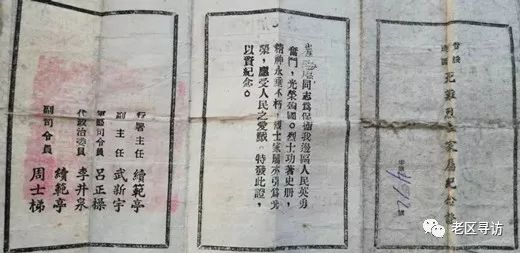 死難烈士家屬紀念證
492號
同志為保衛我邊區人民英勇
奮鬥，光榮殉國。烈士功著史册，
精神永垂不朽，烈士家屬亦引爲光
榮，應受人民之愛戴。特發此證，
以資紀念。
行署主任 續範亭
副主任 武新宇
軍區司令員 呂正操
代政治委員 李井泉
副司令員 續範亭
周士梯
老区寻访